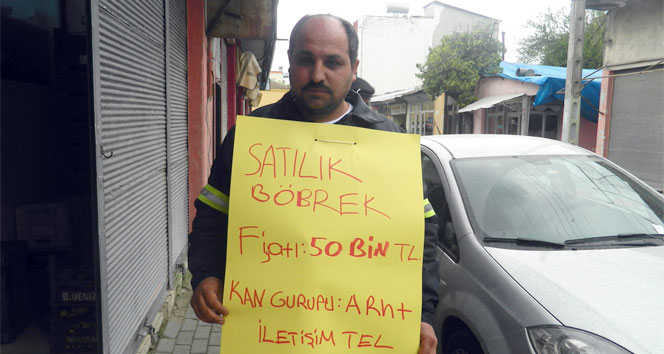 SATILIK
BÖBREK
Fiyatı: 50 BİN TL.
KAN GURUPU: A RH+
İLETİŞİM TEL